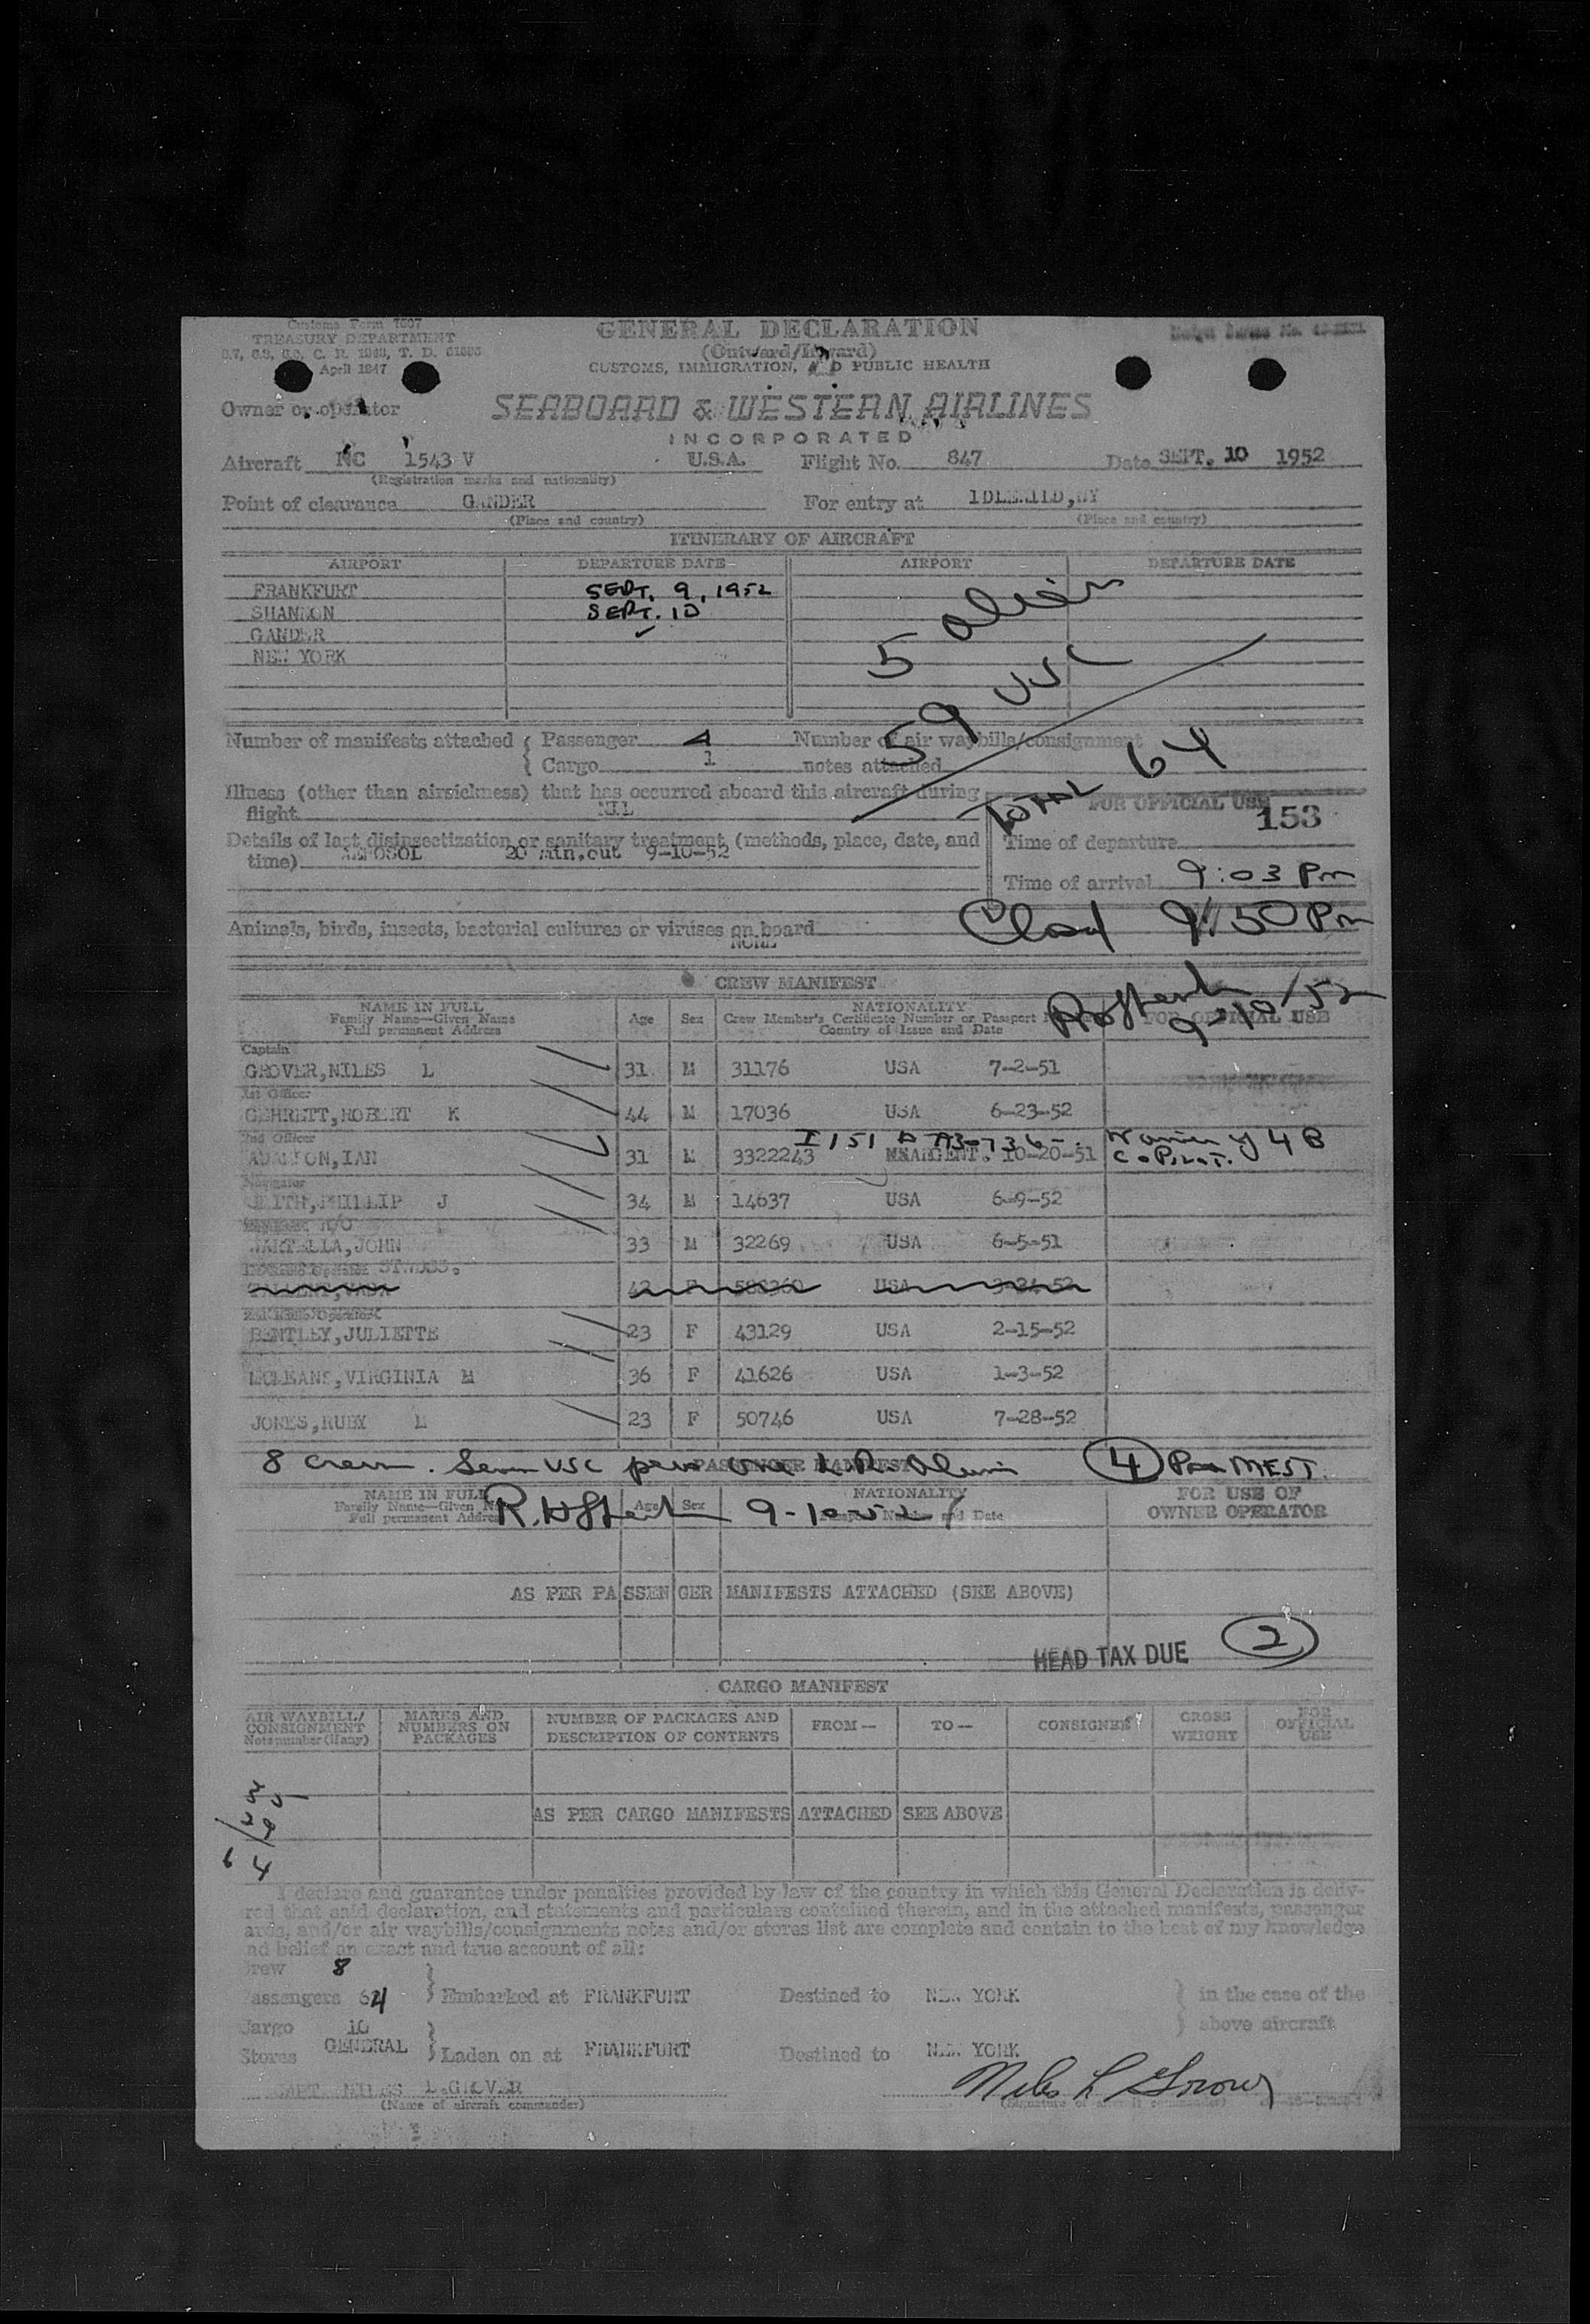 Customs Form 7507
TREASURY DEPARTMENT
April 1947
GENERAL DECLARATION
(Outward/Inward)
CUSTOMS, IMMIGRATION, AND PUBLIC HEALTH
Owner or operator SEABOARD & WESTERN AIRLINES
INCORPORATED
Aircraft NC 1543 V U.S.A. Flight No. 847 Date SEPT. 10 1952
(Registration marks and nationality)
Point of clearance GANDER For entry at IDLEWILD, NY
(Place and country) (Place and country)
ITINERARY OF AIRCRAFT
AIRPORT DEPARTURE DATE AIRPORT DEPARTURE DATE
FRANKFURT SEPT. 9, 1952
SHANNON SEPT. 10
GANDER
NEW YORK
5 alien
59 USC
TOTAL 64
Number of manifests attached { Passenger 4 Number of air waybills/consignment
Cargo 1 notes attached
Illness (other than airsickness) that has occurred aboard this aircraft during
flight NIL
FOR OFFICIAL USE
153
Details of last disinsectization or sanitary treatment (methods, place, date, and
time) AEROSOL 20 min.out 9-10-52
Time of departure
Time of arrival 9:03 Pm
Closed 9:50 Pm
Animals, birds, insects, bacterial cultures or viruses on board
NONE
CREW MANIFEST
9-10/52
NAME IN FULL
Family Name—Given Name
Full permanent Address
Age Sex
NATIONALITY
Crew Member's Certificate Number or Passport
Country of Issue and Date
FOR OFFICIAL USE
Captain
GROVER,NILES L 31 M 31176 USA 7-2-51
1st Officer
GEHRETT,ROBERT K 44 M 17036 USA 6-23-52
2nd Officer
I 151
IAN 31 M 3322243 ARGENT. 10-20-51
4 B
Co Pilot.
Navigator
PHILLIP J 34 M 14637 USA 6-9-52
JOHN 33 M 32269 USA 6-5-51
BENTLEY,JULIETTE 23 F 43129 USA 2-15-52
MCLEANS,VIRGINIA M 36 F 41626 USA 1-3-52
JONES,RUBY L 23 F 50746 USA 7-28-52
8 crew. Seven USC
PASSENGER MANIFEST
4 Pax MEST.
NAME IN FULL
Family Name—Given
Full permanent Address
Age Sex
NATIONALITY
and Date
FOR USE OF
OWNER OPERATOR
9-10-52
AS PER PASSENGER MANIFESTS ATTACHED (SEE ABOVE)
HEAD TAX DUE 2
CARGO MANIFEST
AIR WAYBILL/
CONSIGNMENT
Note number (if any)
MARKS AND
NUMBERS ON
PACKAGES
NUMBER OF PACKAGES AND
DESCRIPTION OF CONTENTS
FROM— TO— CONSIGNEE
GROSS
WEIGHT
FOR
OFFICIAL
USE
AS PER CARGO MANIFESTS ATTACHED SEE ABOVE
I declare and guarantee under penalties provided by law of the country in which this General Declaration is deliv-
red that said declaration, and statements and particulars contained therein, and in the attached manifests, passenger
ards, and/or air waybills/consignments notes and/or stores list are complete and contain to the best of my knowledge
nd belief an exact and true account of all:
rew 8
assengers 64 } Embarked at FRANKFURT Destined to NEW YORK } in the case of the
Cargo 10 above aircraft
Stores GENERAL } Laden on at FRANKFURT Destined to NEW YORK
CAPT. NILES L.GROVER Niles L Grover
(Name of aircraft commander) (Signature of aircraft commander)